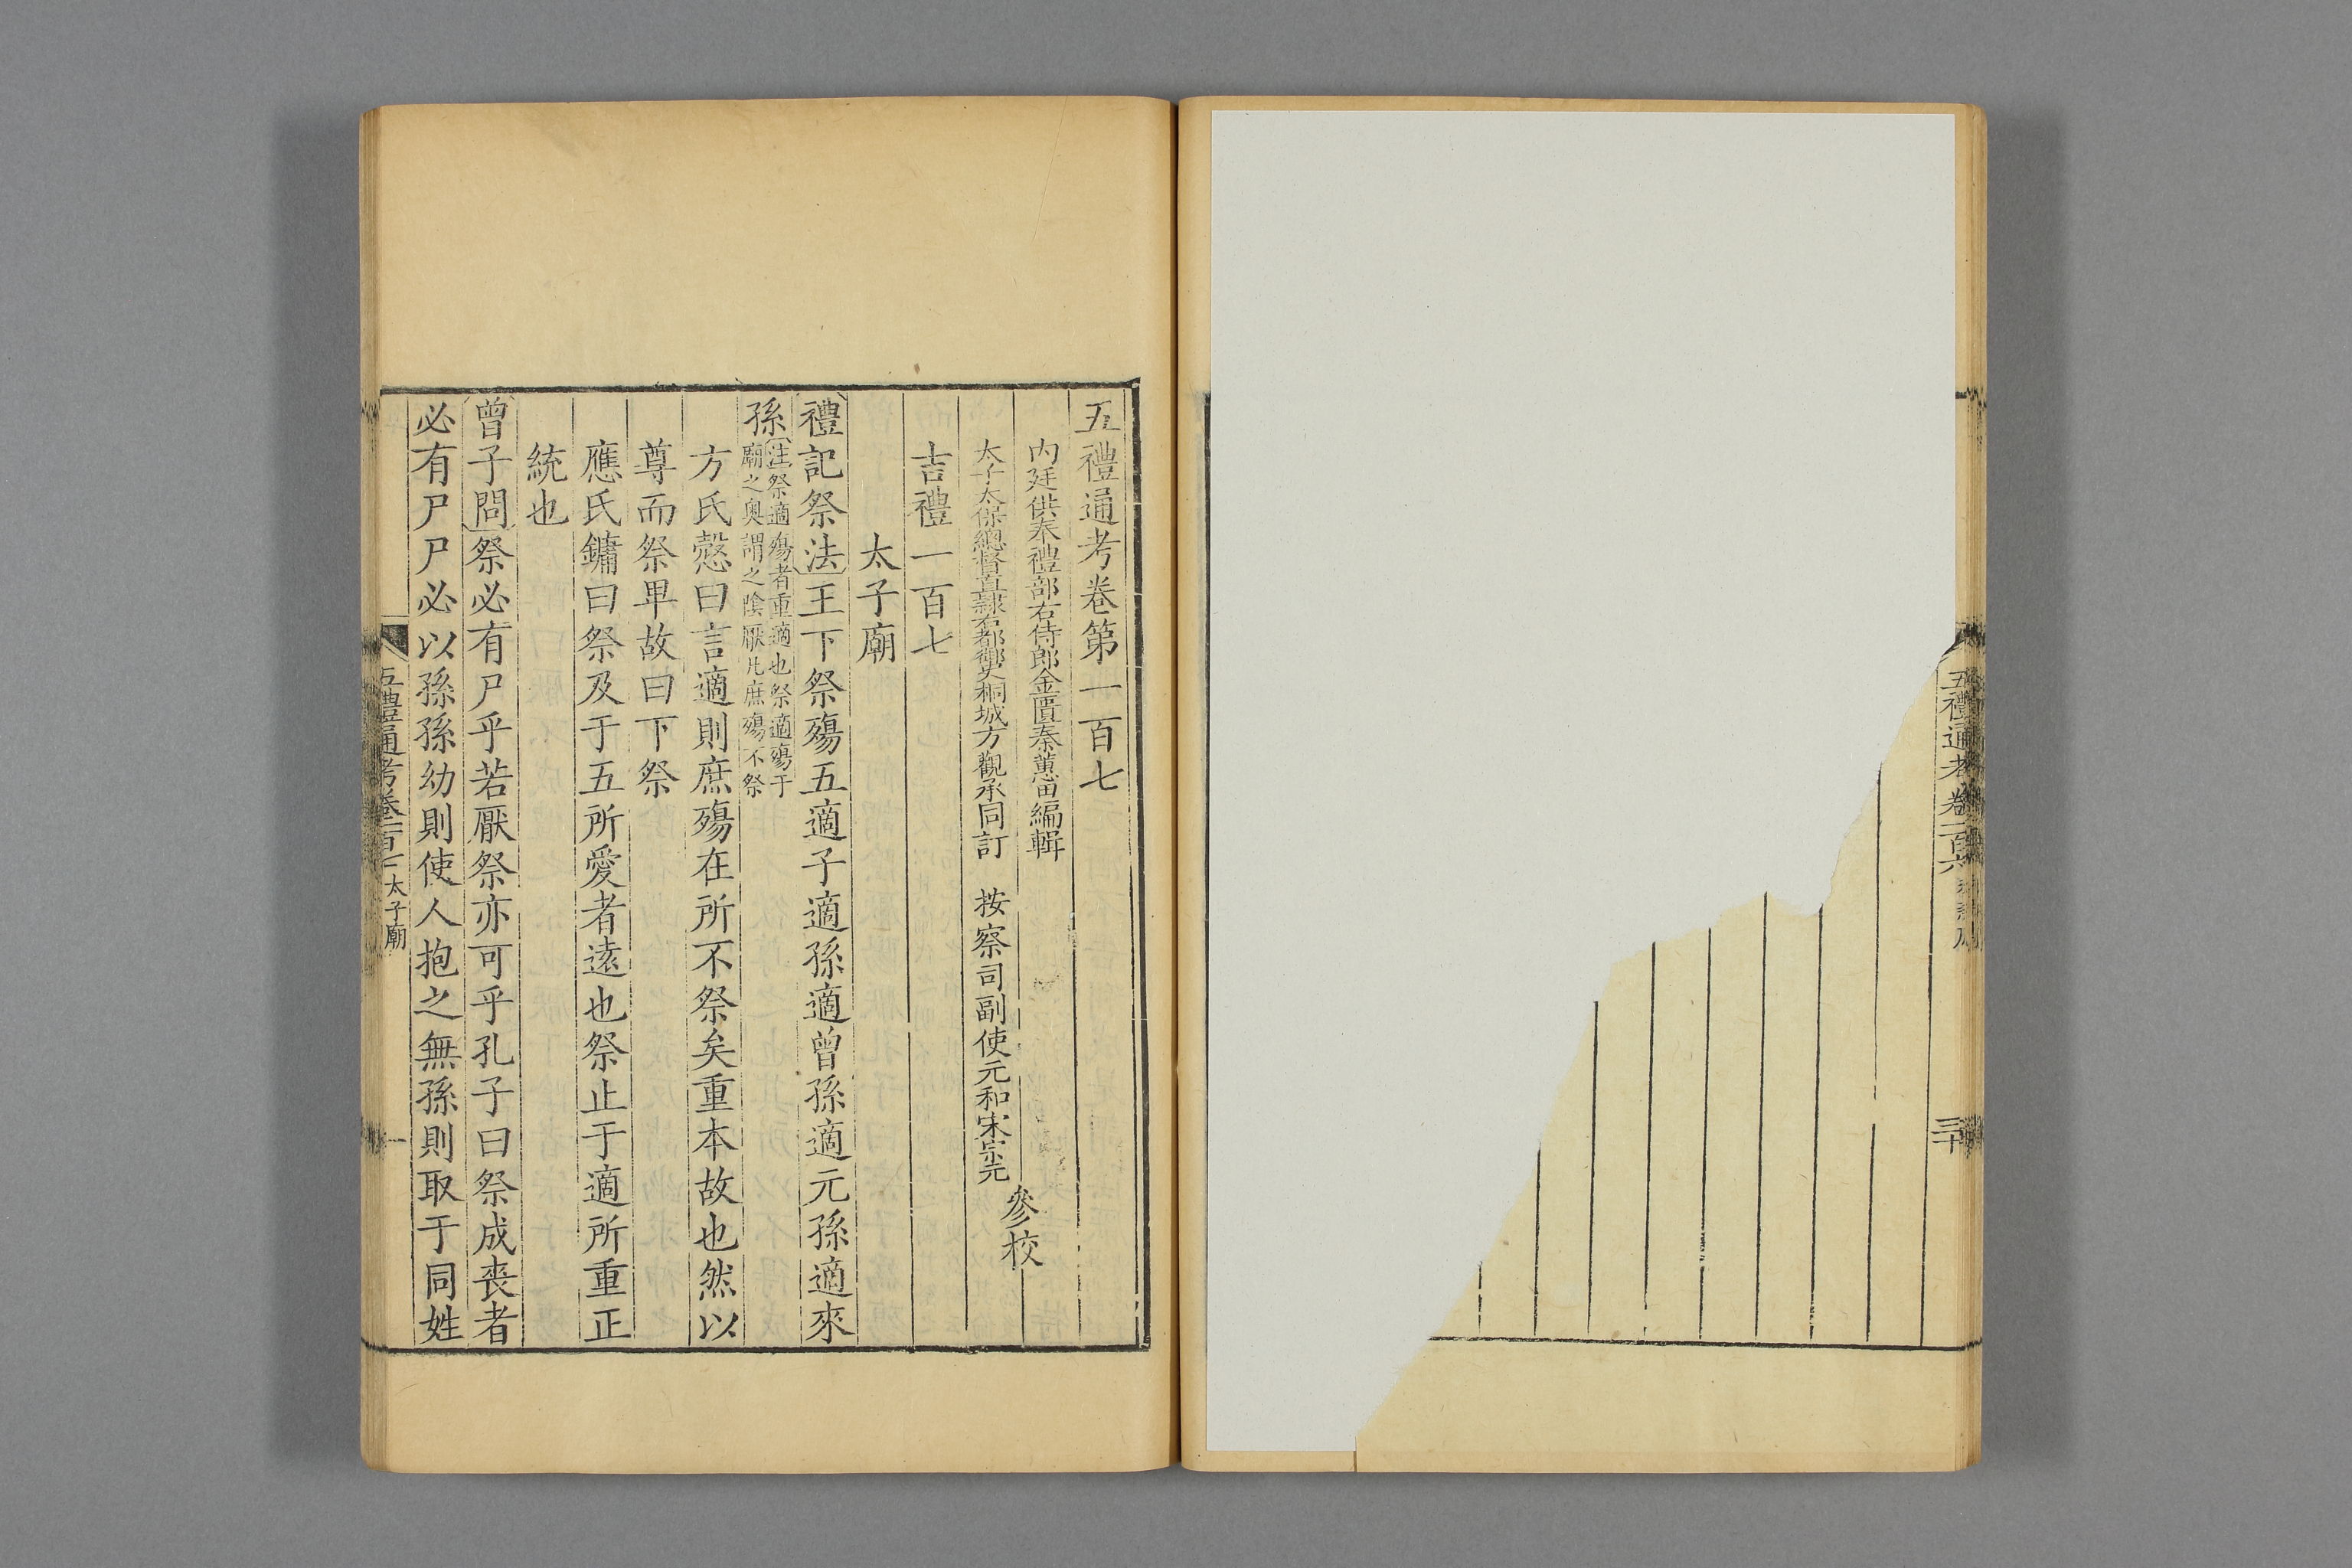 五禮通考 卷一百六
三十
五禮通考卷第一百七
內廷供奉禮部右侍郎金匱秦蕙田編輯
太子太保總督直隸右都御史桐城方觀承同訂 按察司副使元和宋宗元
參校
吉禮一百七
太子廟
禮記祭法王下祭殤五適子適孫適曾孫適元孫適來
孫注祭適殤者重適也祭適殤于
廟之奧謂之陰厭凡庶殤不祭
方氏慤曰言適則庶殤在所不祭矣重本故也然以
尊而祭卑故曰下祭
應氏鏞曰祭及于五所愛者遠也祭止于適所重正
統也
曾子問祭必有尸乎若厭祭亦可乎孔子曰祭成喪者
必有尸尸必以孫孫幼則使人抱之無孫則取于同姓
五禮通考卷一百七 太子廟
一